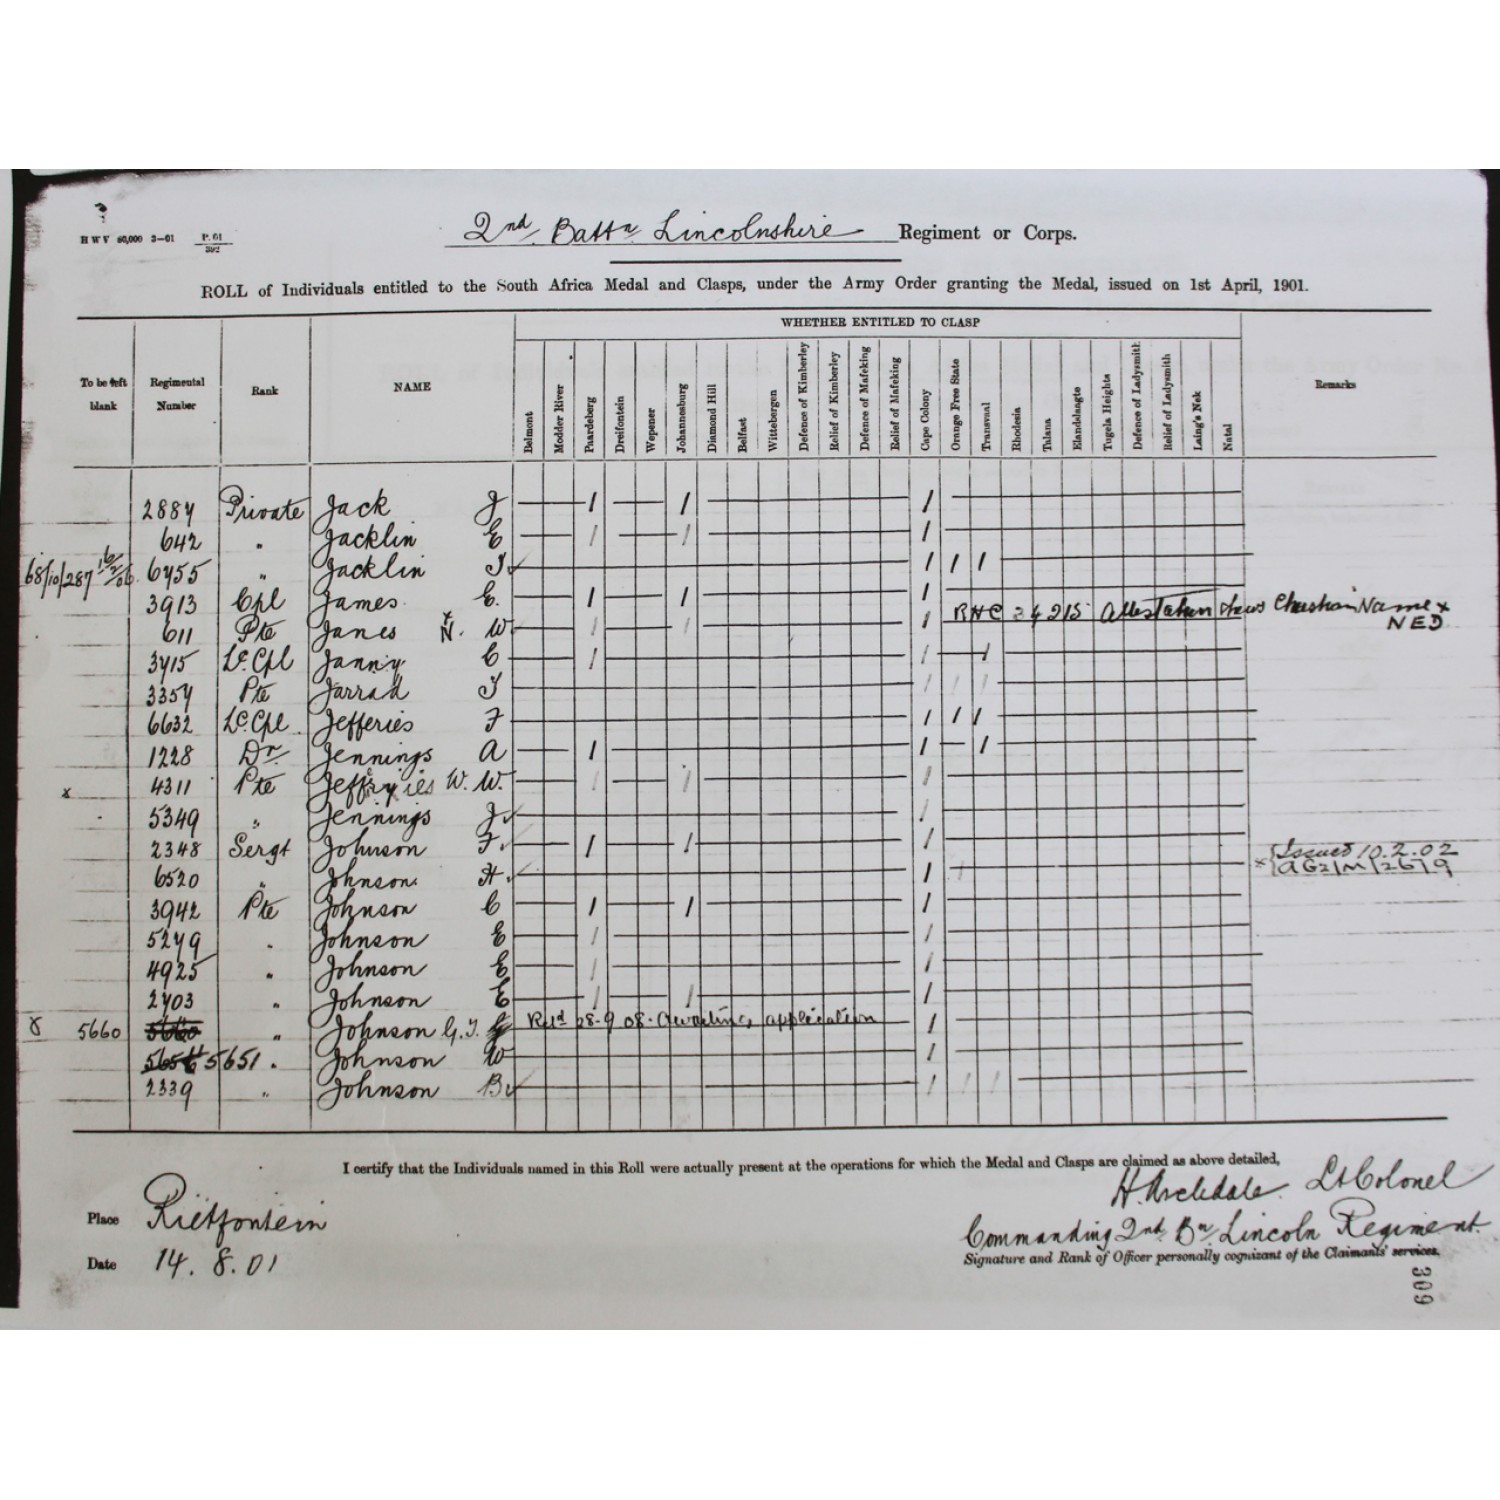 H W V 60,000 3—01 P. 01 / 392
2nd Battn Lincolnshire Regiment or Corps.
ROLL of Individuals entitled to the South Africa Medal and Clasps, under the Army Order granting the Medal, issued on 1st April, 1901.
WHETHER ENTITLED TO CLASP
To be left blank Regimental Number Rank NAME Belmont Modder River Paardeberg Dreifontein Wepener Johannesburg Diamond Hill Belfast Wittebergen Defence of Kimberley Relief of Kimberley Defence of Mafeking Relief of Mafeking Cape Colony Orange Free State Transvaal Rhodesia Talana Elandslaagte Tugela Heights Defence of Ladysmith Relief of Ladysmith Laing's Nek Natal Remarks
2884 Private Jack J — 1 — 1 — 1 —
642 " Jacklin E — 1 — 1 — 1 —
68/10/287 6455 " Jacklin J — 1 1 1 —
3913 Cpl James C. — 1 — 1 — 1 —
611 Pte Janes N. W — 1 — 1 — 1 RHC 34215 Attestation shows Christian Name x
NED
3415 Lc. Cpl Janny C — 1 — 1 — 1 —
3354 Pte Jarrad J — 1 1 1 —
6632 Lc. Cpl Jefferies F — 1 1 1 —
1228 Dr Jennings A — 1 — 1 — 1 —
x 4311 Pte Jefferies W. W. — 1 — 1 — 1 —
5349 " Jennings J — 1 —
2348 Sergt Johnson F. — 1 — 1 — 1 —
6520 " Johnson H — 1 1 — x Issued 10.2.02
AG2/M/2679
3942 Pte Johnson C — 1 — 1 — 1 —
5249 " Johnson E — 1 — 1 —
4925 " Johnson E — 1 — 1 —
2403 " Johnson E — 1 — 1 — 1 —
5660 5660 " Johnson G. J. Rtd 28-9 08. Awaiting application 1 —
5651 " Johnson W — 1 —
2339 " Johnson B — 1 1 1 —
I certify that the Individuals named in this Roll were actually present at the operations for which the Medal and Clasps are claimed as above detailed,
H. Archdale. Lt Colonel
Place Rietfontein
Commanding 2nd Bn Lincoln Regiment.
Date 14. 8. 01
Signature and Rank of Officer personally cognizant of the Claimants' services.
309